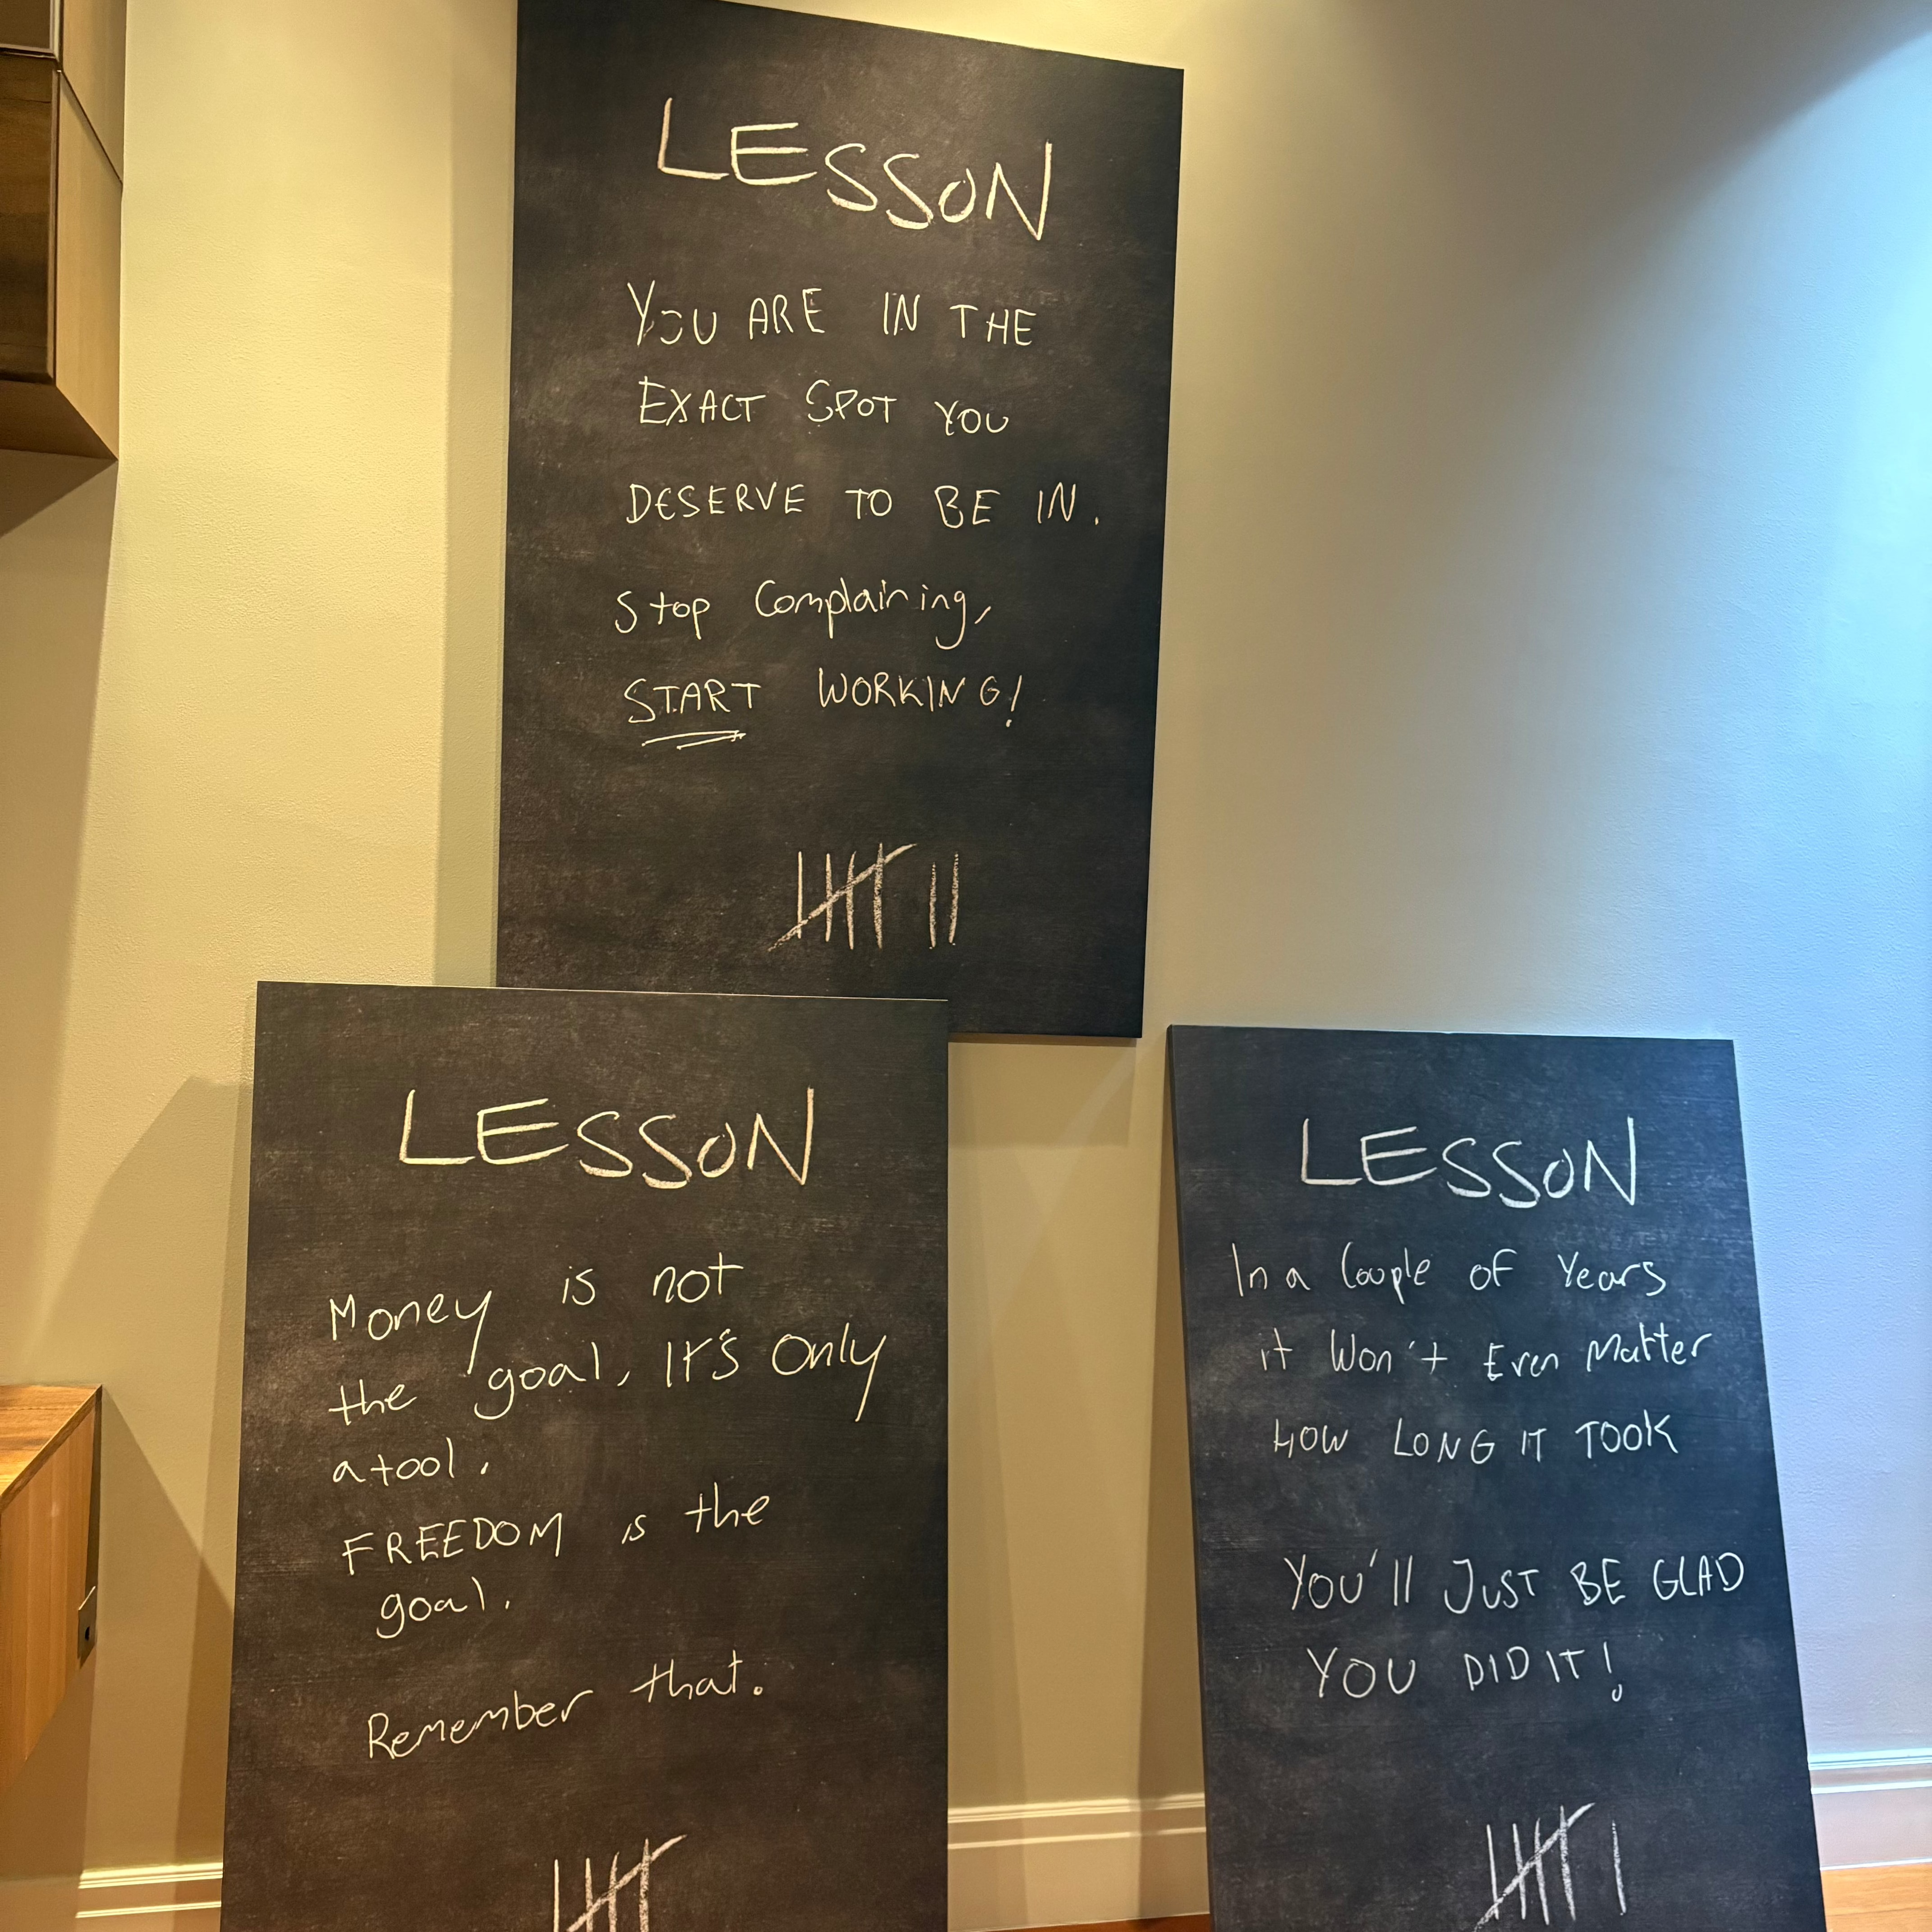 LESSON
YOU ARE IN THE
EXACT SPOT YOU
DESERVE TO BE IN.
Stop Complaining,
START WORKING!
LESSON
Money is not
the goal, IT'S Only
a tool.
FREEDOM is the
goal.
Remember that.
LESSON
In a Couple of Years
it Won't Even Matter
HOW LONG IT TOOK
YOU'll JUST BE GLAD
YOU DID IT!